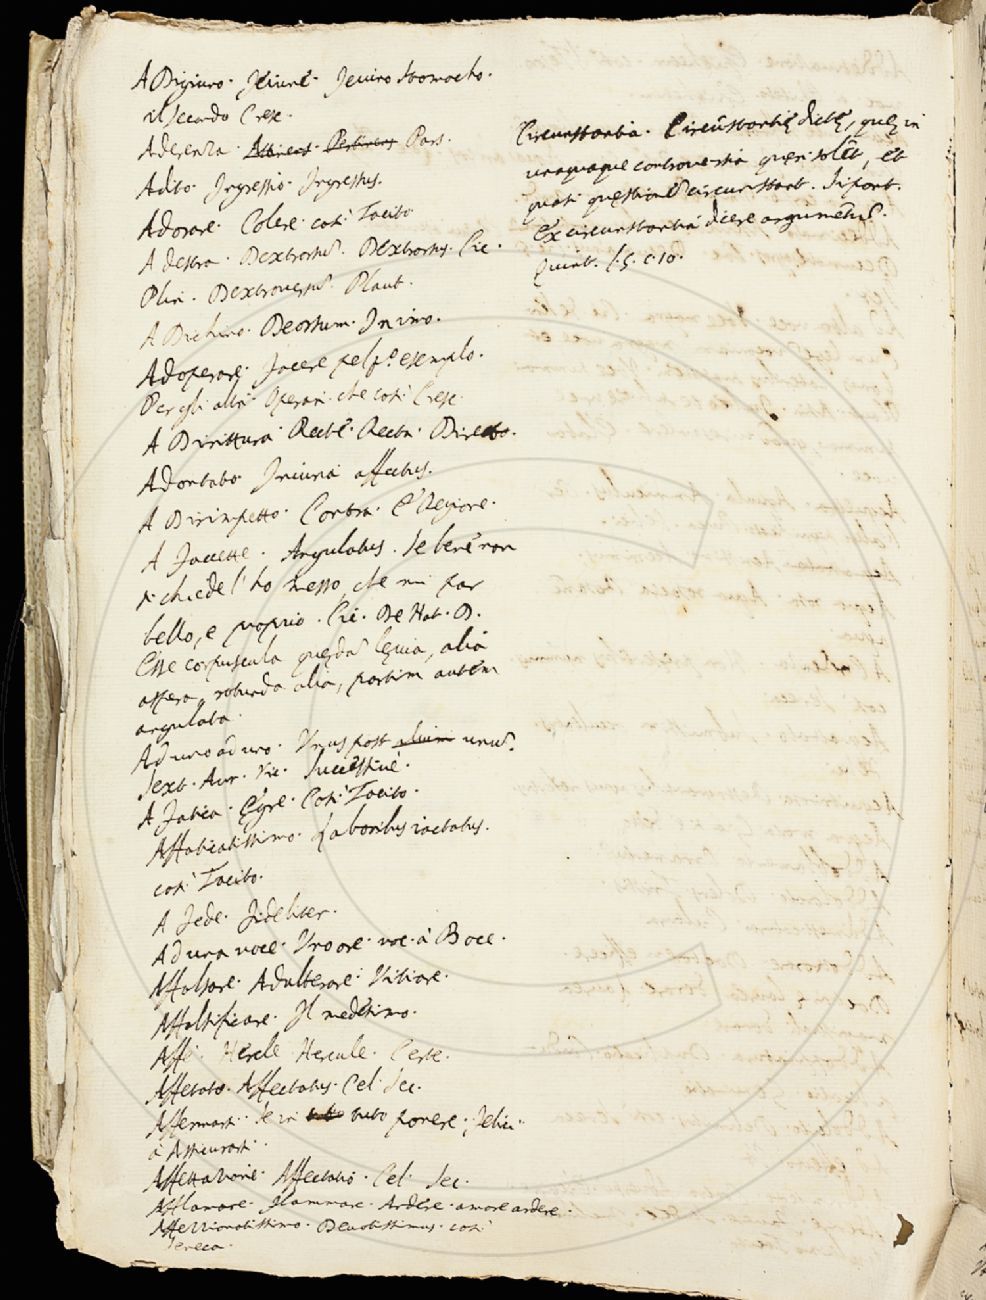 A Digiuno. Jeiunè. Jeiuno stomacho.
il secondo Cresc.
Aderenza. Attinens. Pertinens Pars.
Adito. Ingressio. Ingressus.
Adorare. Colere. così Tacito
A destra. Dextrorsũ. Dextrorsus. Cic.
Plin. Dextroversũ. Plaut.
A Dichino. Deorsum. In imo.
Adoperare. Facere
Per gli altri. Operari. che così Cresc.
A Dirittura Rectè. Recta. Directo.
Adontato. Iniuria affectus.
A Dirimpetto. Contra. È Regione.
A Faccette. Angulatus. Se bene non
si chiede l'ho messo, che mi par
bello, e proprio. Cic. De Nat. D.
Esse corpuscula quędã lęvia, alia
aspera, rotunda alia, partim autem
angulata.
Ad uno ad uno. Unus post alium unũ.
Sext. Aur. Vic. Successivè.
A Fatica. Ęgre. Così Tacito.
Affaticatissimo. Laboribus iactatus.
così Tacito.
A Fede. Fideliter.
Ad una voce. Uno ore. voc. à Boce.
Affalsare. Adulterare. Vitiare.
Affalsificare. Il medesimo.
Affè. Hercle. Hercule. Certe.
Affettato. Affectatus. Cel. Sec.
Affermarsi. Se in tuto tuto ponere.
à Assicurarsi.
Affettazione. Affectatio. Cel. Sec.
Affiamare. Flammare. Ardere. amore ardere.
Affezzionatissimo. Devotissimus. così
Seneca.
Circunstantia. Circũstantię dictę, quę in
unaquaque controversia quęri solẽt, et
quasi quęstionẽ circunstant. Si font.
Ex circunstantia dicere argumẽtũ.
Quint. l. 5. c. 10.